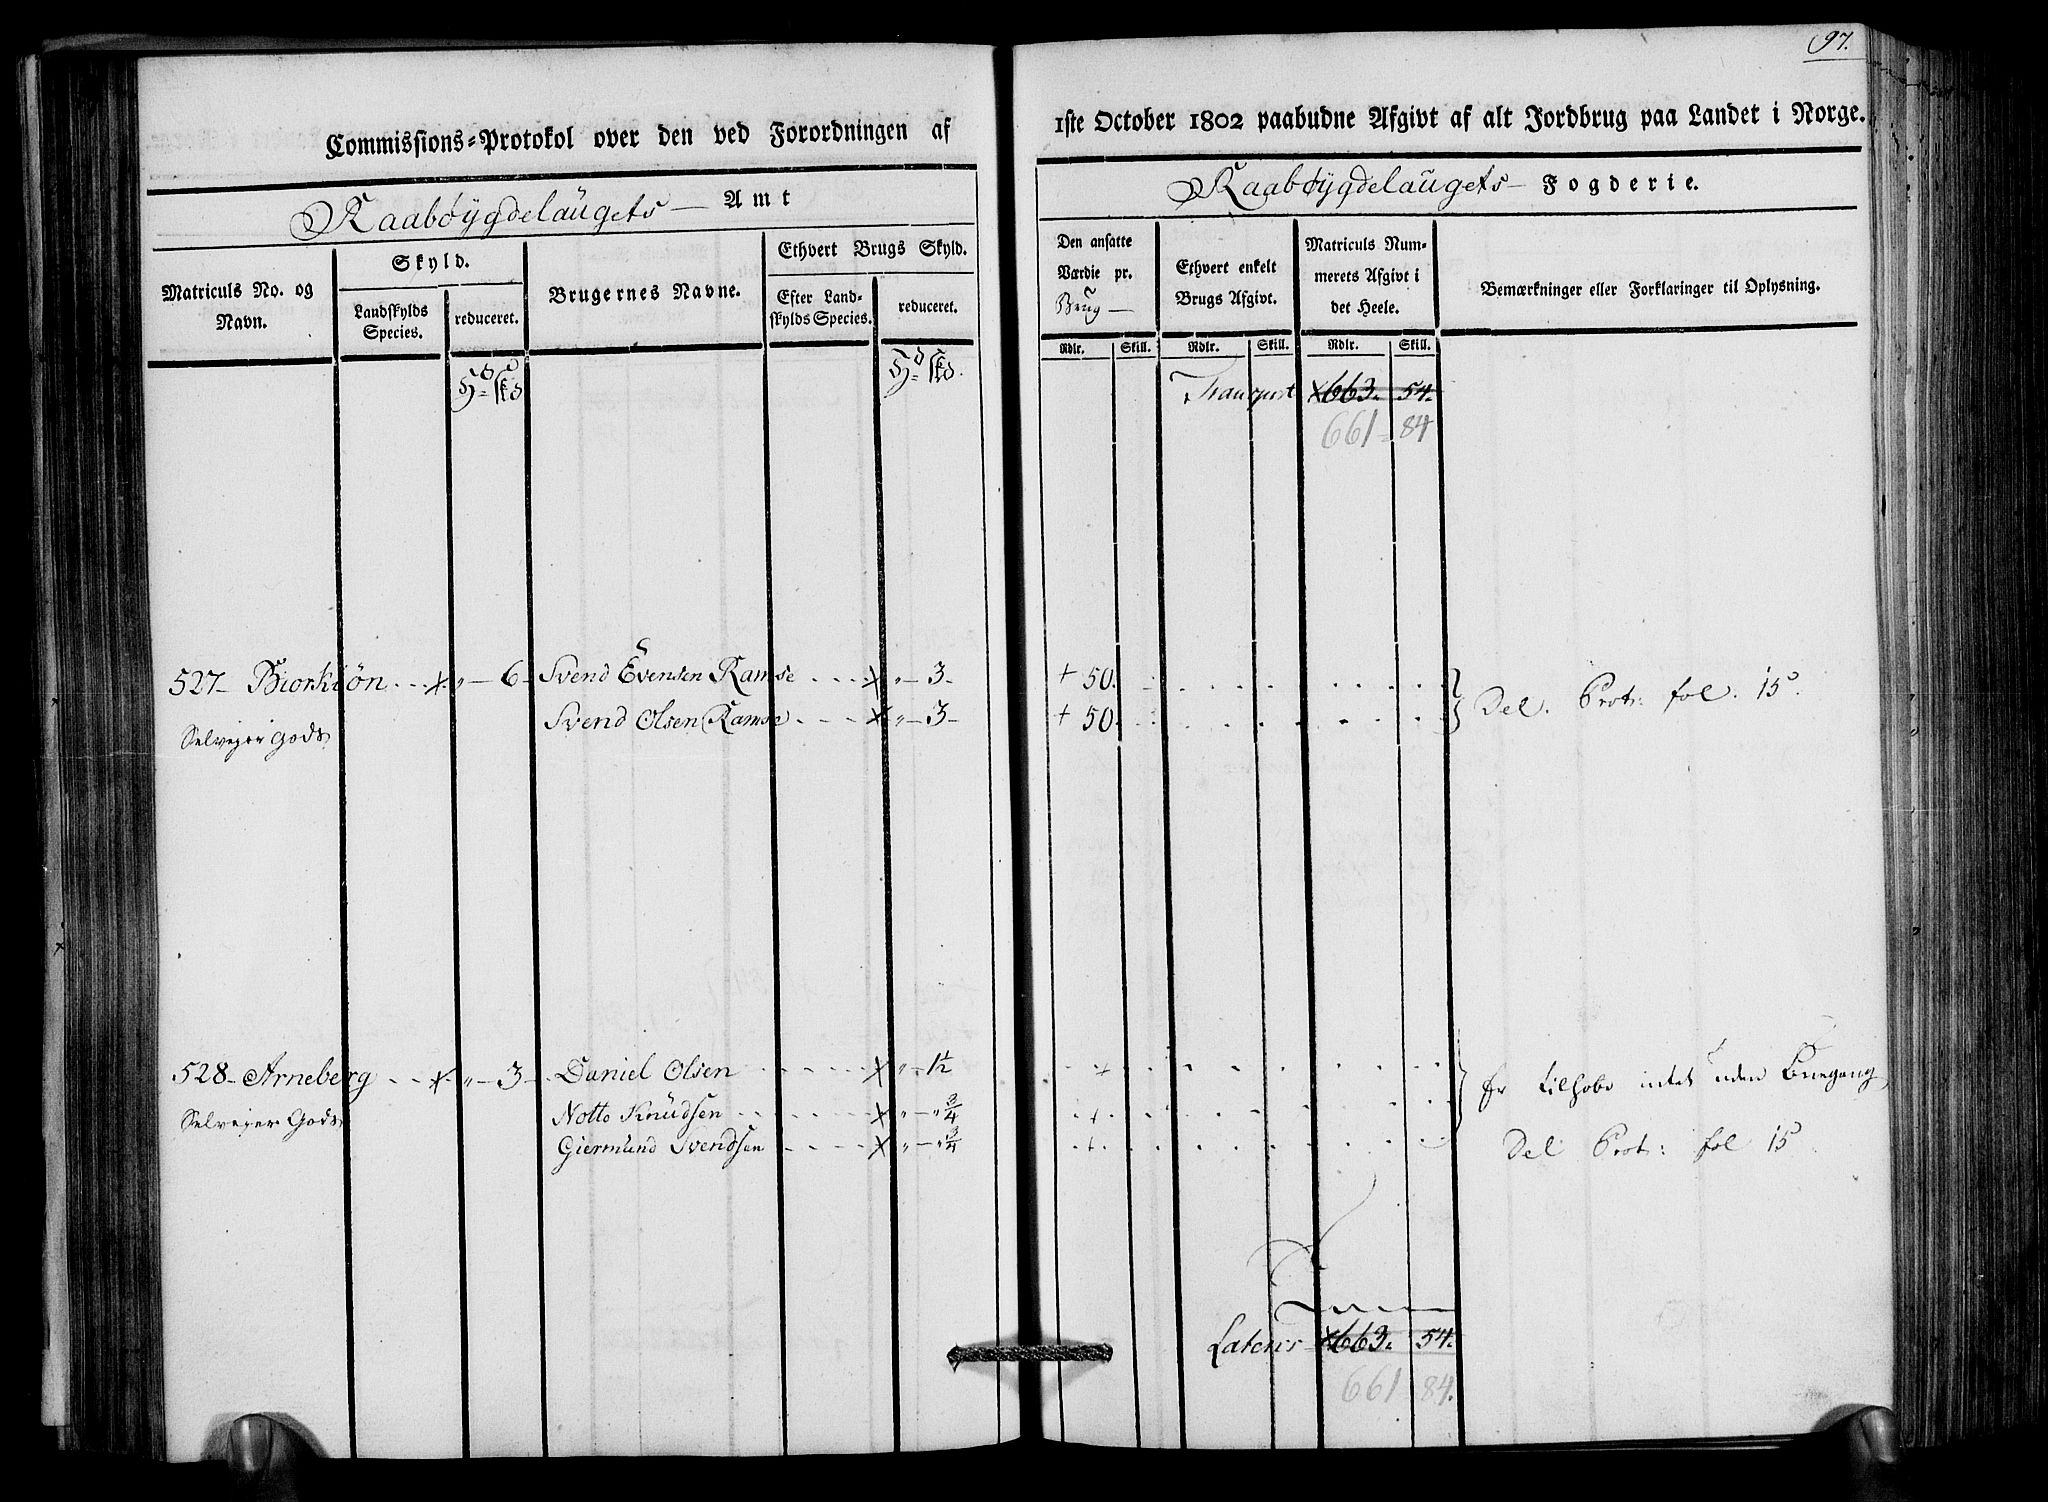 97.
Commissions=Protokol over den ved Forordningen af
1ste October 1802 paabudne Afgivt af alt Jordbrug paa Landet i Norge.
Raabøygdelaugets — Amt
Raabøygdelaugets — Fogderie.
Matriculs No. og Navn.
Skyld.
Landskylds Species.
reduceret.
Brugernes Navne.
Ethvert Brugs Skyld.
Efter Landskylds Species.
reduceret.
Den ansatte Værdie pr. Brug —
Ethvert enkelt Brugs Afgivt.
Matriculs Nummerets Afgivt i det Heele.
Bemærkninger eller Forklaringer til Oplysning.
Rdlr. Skill. Rdlr. Skill. Rdlr. Skill.
Transport x663. 54.
661 - 84
527 - Biorkiøn . . . x . „ — 6 - Svend Evensen Ramse . . . . x „ — 3 - + 50. Del. Prot: fol. 15.
Svend Olsen Ramse . . . . x „ — 3 - + 50.
Selvejer Gods
528 - Arneberg . . . x . „ — 3 - Daniel Olsen . . . . x „ — 1½ + Er tilhobe intet uden Buegang
Selvejer Gods Notto Knudsen . . . . x „ — „ ¾ +
Giermund Svendsen . . . . x „ — „ ¾ + Del Prot: fol 15
Lateris x663. 54.
661 - 84.